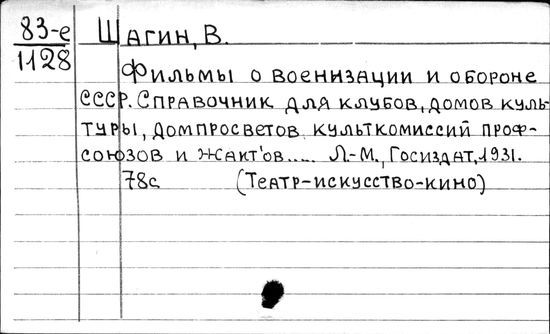 83-е Шагин, В.
1128
Фильмы о военизации и обороне
СССР. Справочник для клубов, домов куль-
туры, домпросветов культкомиссий проф-
союзов и жакт'ов..... Л.-М., Госиздат, 1931.
78с (Театр-искусство-кино)